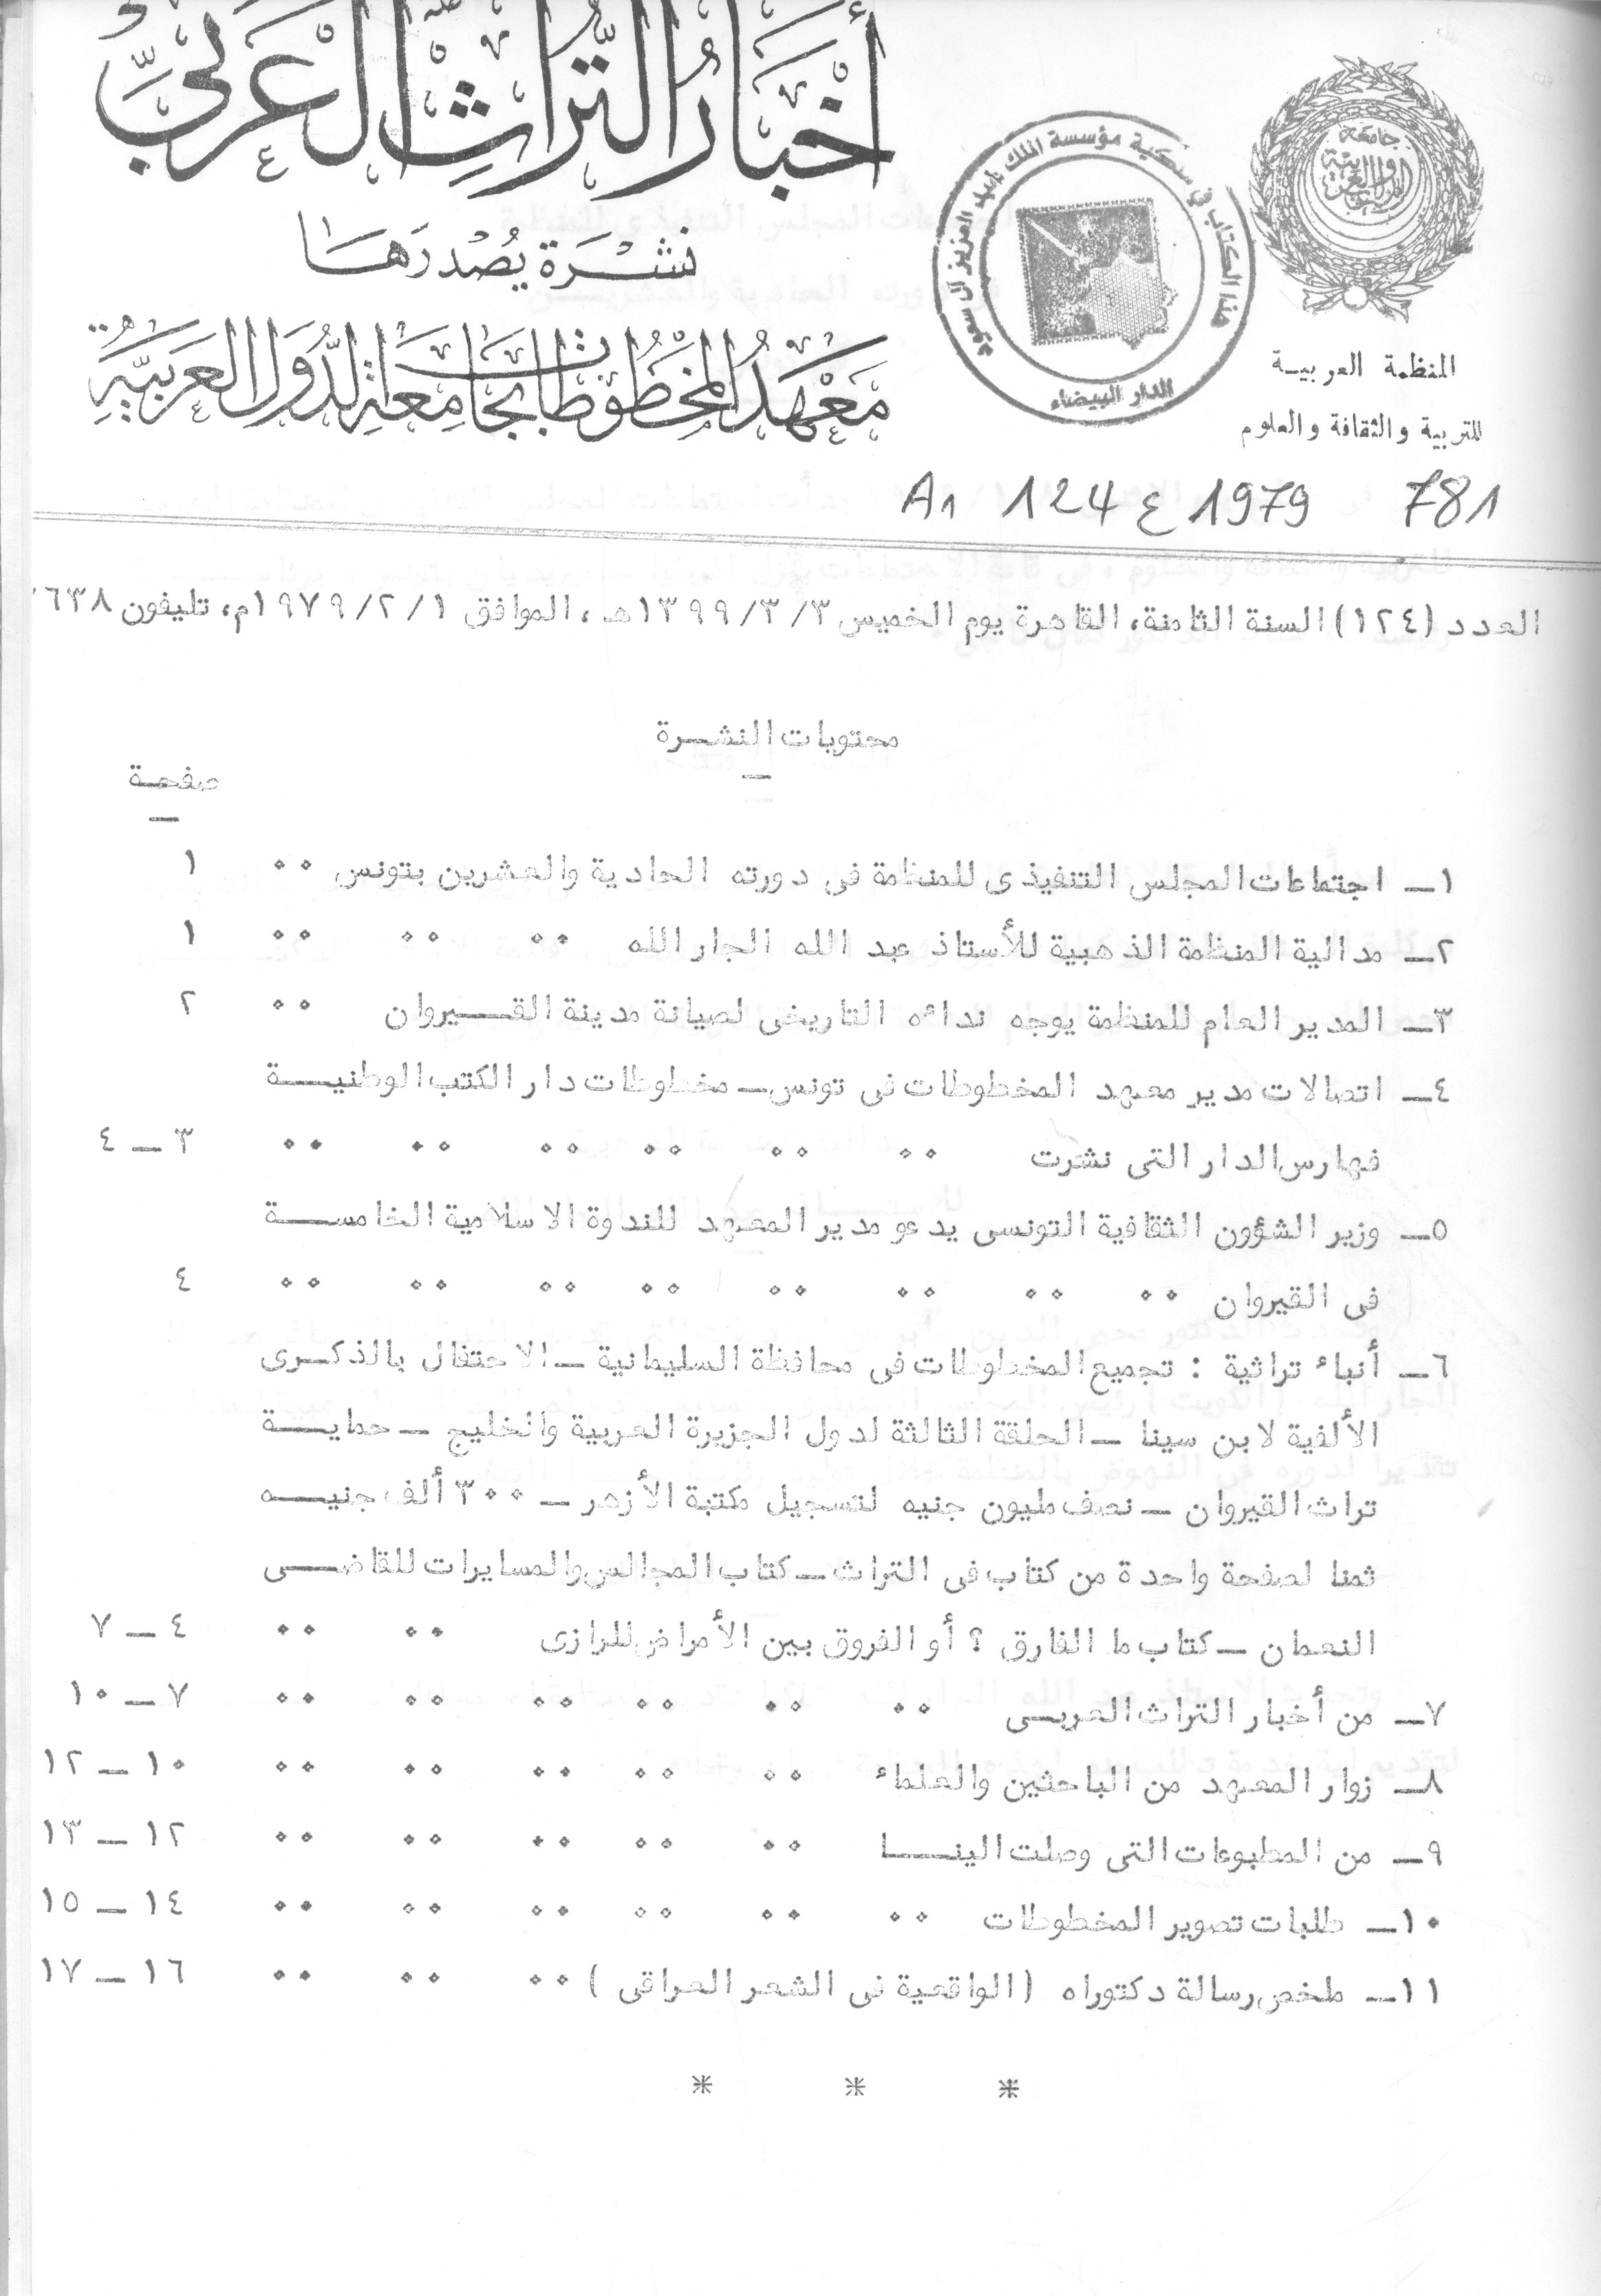 أخبار التراث العربي
نشرة يصدرها
معهد المخطوطات بجامعة الدول العربية
جامعة الدول العربية
المنظمة العربيـة
للتربية والثقافة والعلوم
هذا الكتاب في ملكية مؤسسة الملك عبد العزيز آل سعود
الدار البيضاء
A1 124 ع 1979 781
العدد (١٢٤) السنة الثامنة، القاهرة يوم الخميس ٣/٣/١٣٩٩هـ، الموافق ١/٢/١٩٧٩م، تليفون ٦٣٨
محتويات النشـرة
صفحـة
١ــ اجتماعات المجلس التنفيذى للمنظمة فى دورته الحادية والعشرين بتونس ٠٠ ١
٢ــ مدالية المنظمة الذهبية للأستاذ عبد الله الجار الله ٠٠ ٠٠ ٠٠ ١
٣ــ المدير العام للمنظمة يوجه نداءه التاريخى لصيانة مدينة القـــيروان ٠٠ ٢
٤ــ اتصالات مدير معهد المخطوطات فى تونس ــ مخطوطات دار الكتب الوطنيــة
فهارس الدار التى نشرت ٠٠ ٠٠ ٠٠ ٠٠ ٠٠ ٠٠ ٣ ــ ٤
٥ــ وزير الشؤون الثقافية التونسى يدعو مدير المعهد للندوة الاسلامية الخامســة
فى القيروان ٠٠ ٠٠ ٠٠ ٠٠ ٠٠ ٠٠ ٠٠ ٠٠ ٤
٦ــ أنباء تراثية : تجميع المخطوطات فى محافظة السليمانية ــ الاحتفال بالذكـرى
الألفية لابن سينا ــ الحلقة الثالثة لدول الجزيرة العربية والخليج ــ حمايــة
تراث القيروان ــ نصف مليون جنيه لتسجيل مكتبة الأزهر ــ ٣٠٠ ألف جنيــه
ثمنا لصفحة واحدة من كتاب فى التراث ــ كتاب المجالس والمسايرات للقاضــى
النعمان ــ كتاب ما الفارق ؟ أو الفروق بين الأمراض للرازى ٠٠ ٠٠ ٤ ــ ٧
٧ــ من أخبار التراث العربـى ٠٠ ٠٠ ٠٠ ٠٠ ٠٠ ٠٠ ٧ ــ ١٠
٨ــ زوار المعهد من الباحثين والعلماء ٠٠ ٠٠ ٠٠ ٠٠ ٠٠ ١٠ ــ ١٢
٩ــ من المطبوعات التى وصلت الينـــا ٠٠ ٠٠ ٠٠ ٠٠ ٠٠ ١٢ ــ ١٣
١٠ــ طلبات تصوير المخطوطات ٠٠ ٠٠ ٠٠ ٠٠ ٠٠ ٠٠ ١٤ ــ ١٥
١١ــ ملخص رسالة دكتوراه (الواقعية فى الشعر العراقى ) ٠٠ ٠٠ ٠٠ ١٦ ــ ١٧
* * *